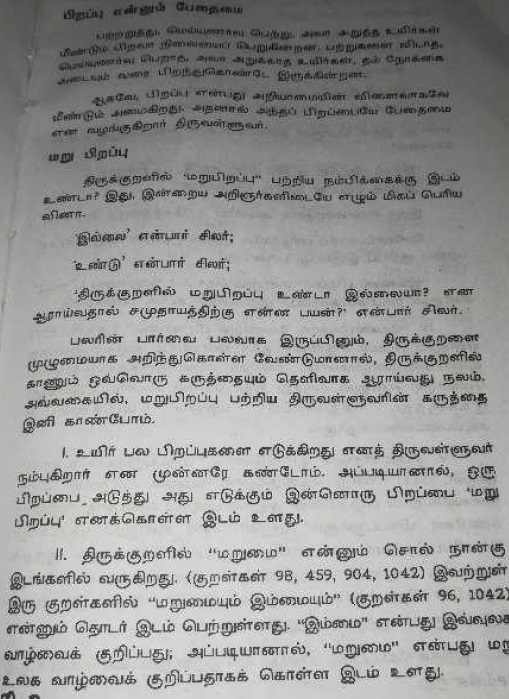 பிறப்பு என்னும் பேதைமை
பற்றறுத்து, மெய்யுணர்வு பெற்று, அவா அறுத்த உயிர்கள்
மீண்டும் பிறவா நிலையைப் பெறுகின்றன. பற்றுகளை விடாத,
மெய்யுணர்வு பெறாத, அவா அறுக்காத உயிர்கள், தம் நோக்கை
அடையும் வரை பிறந்துகொண்டே இருக்கின்றன.
ஆகவே, பிறப்பு என்பது அறியாமையின் விளைவாகவே
மீண்டும் அமைகிறது. அதனால் அந்தப் பிறப்பையே பேதைமை
என வழங்குகிறார் திருவள்ளுவர்.
மறு பிறப்பு
திருக்குறளில் "மறுபிறப்பு" பற்றிய நம்பிக்கைக்கு இடம்
உண்டா? இது, இன்றைய அறிஞர்களிடையே எழும் மிகப் பெரிய
வினா.
'இல்லை' என்பார் சிலர்;
'உண்டு' என்பார் சிலர்;
'திருக்குறளில் மறுபிறப்பு உண்டா இல்லையா? என
ஆராய்வதால் சமுதாயத்திற்கு என்ன பயன்?' என்பார் சிலர்.
பலரின் பார்வை பலவாக இருப்பினும், திருக்குறளை
முழுமையாக அறிந்துகொள்ள வேண்டுமானால், திருக்குறளில்
காணும் ஒவ்வொரு கருத்தையும் தெளிவாக ஆராய்வது நலம்.
அவ்வகையில், மறுபிறப்பு பற்றிய திருவள்ளுவரின் கருத்தை
இனி காண்போம்.
I. உயிர் பல பிறப்புகளை எடுக்கிறது எனத் திருவள்ளுவர்
நம்புகிறார் என முன்னரே கண்டோம். அப்படியானால், ஒரு
பிறப்பை அடுத்து அது எடுக்கும் இன்னொரு பிறப்பை 'மறு
பிறப்பு' எனக்கொள்ள இடம் உளது.
II. திருக்குறளில் "மறுமை" என்னும் சொல் நான்கு
இடங்களில் வருகிறது. (குறள்கள் 98, 459, 904, 1042) இவற்றுள்
இரு குறள்களில் "மறுமையும் இம்மையும்" (குறள்கள் 96, 1042)
என்னும் தொடர் இடம் பெற்றுள்ளது. "இம்மை" என்பது இவ்வுலக
வாழ்வைக் குறிப்பது; அப்படியானால், "மறுமை" என்பது மறு
உலக வாழ்வைக் குறிப்பதாகக் கொள்ள இடம் உளது.